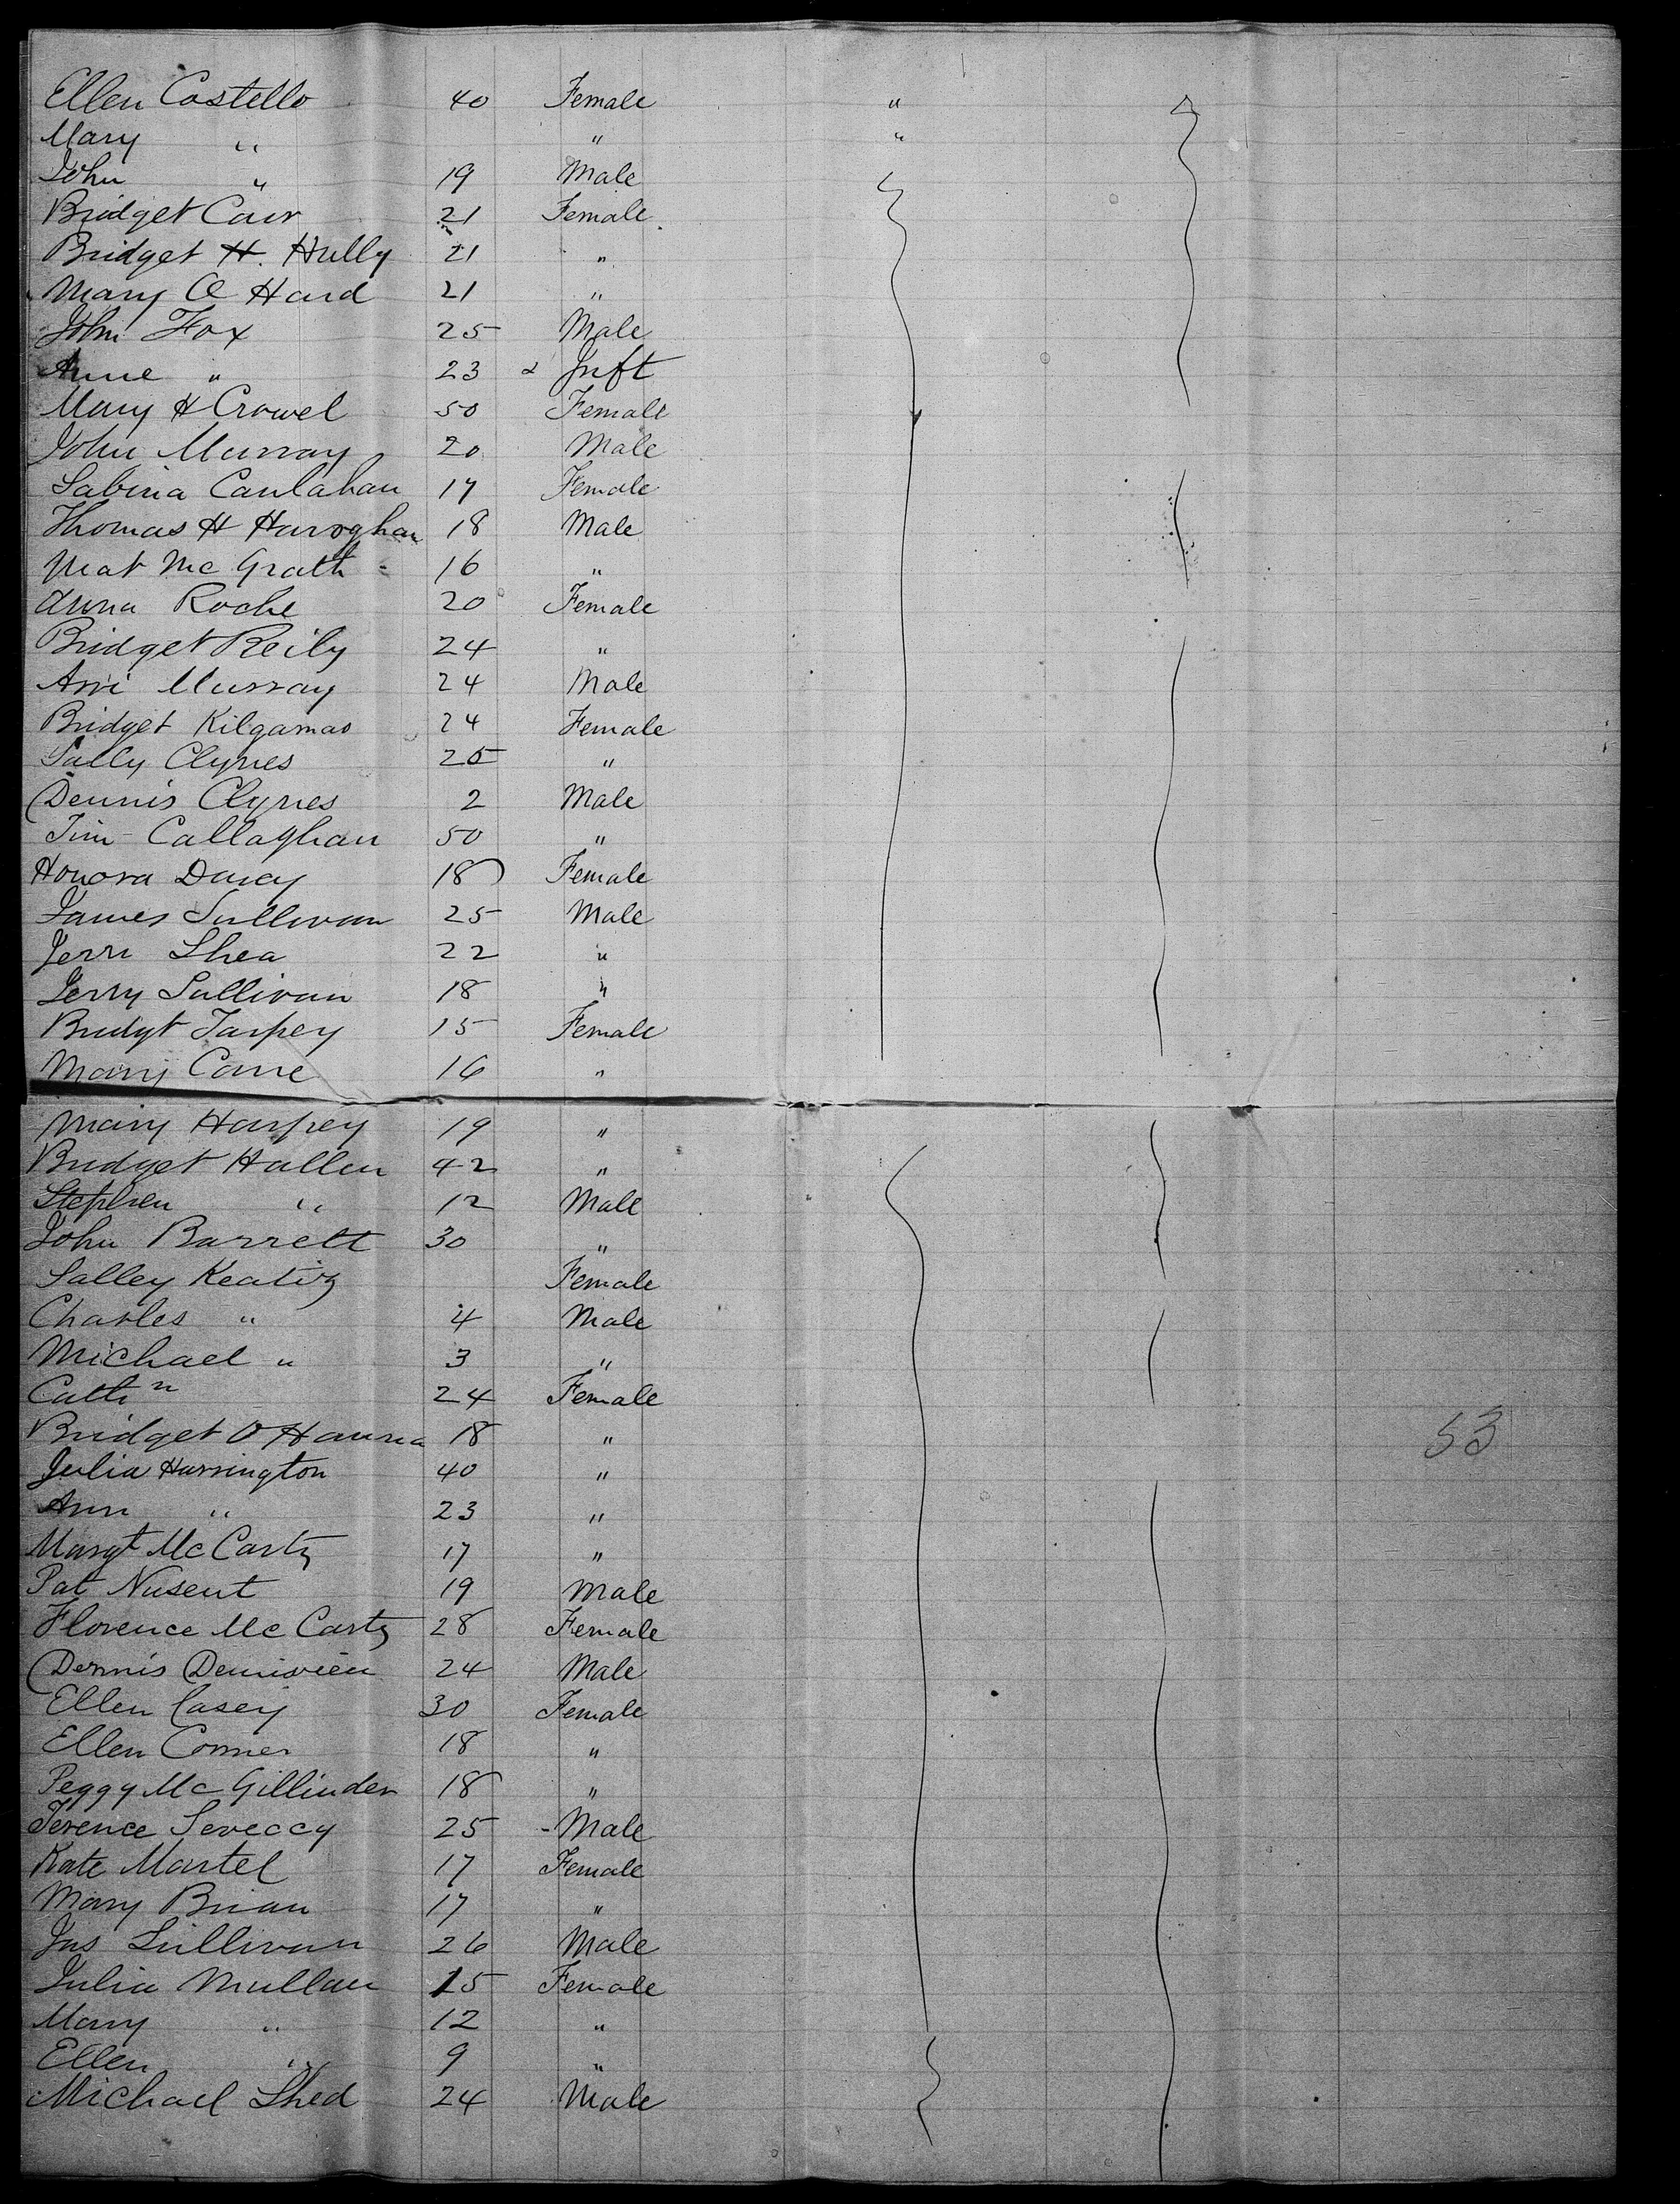 Ellen Costello 40 Female "
Mary " " "
John " 19 Male
Bridget Carr 21 Female
Bridget H. Hully 21 "
Mary O Hard 21 "
John Fox 25 Male
Anne " 23 & Inft
Mary H Crowel 50 Female
John Murray 20 Male
Sabina Caulahan 17 Female
Thomas H Haroghan 18 Male
Mat Mc Grath 16 "
Anna Roche 20 Female
Bridget Reily 24 "
Murray 24 Male
Bridget Kilgamas 24 Female
Sally Clynes 25 "
Dennis Clynes 2 Male
Tim Callaghan 50 "
Honora Darcy 18 Female
James Sullivan 25 Male
Jerri Shea 22 "
Jerry Sullivan 18 "
Bridgt Tarpey 15 Female
Mary Cane 16 "
Mary Harpey 19 "
Bridget Hallen 42 "
Stephen " 12 Male
John Barrett 30 "
Salley Keating Female
Charles " 4 Male
Michael " 3 "
Cath n 24 Female
Bridget O Hanna 18 "
53
Julia Harrington 40 "
Ann " 23 "
Margt McCarty 17 "
Pat Nusent 19 Male
Florence McCarty 28 Female
Dennis 24 Male
Ellen Casey 30 Female
Ellen Conner 18 "
Peggy McGillinder 18 "
Terence 25 - Male
Kate Martel 17 Female
Mary Brian 17 "
Jas Sullivan 26 Male
Julia Mullan 15 Female
Mary " 12 "
Ellen " 9 "
Michael Shed 24 Male